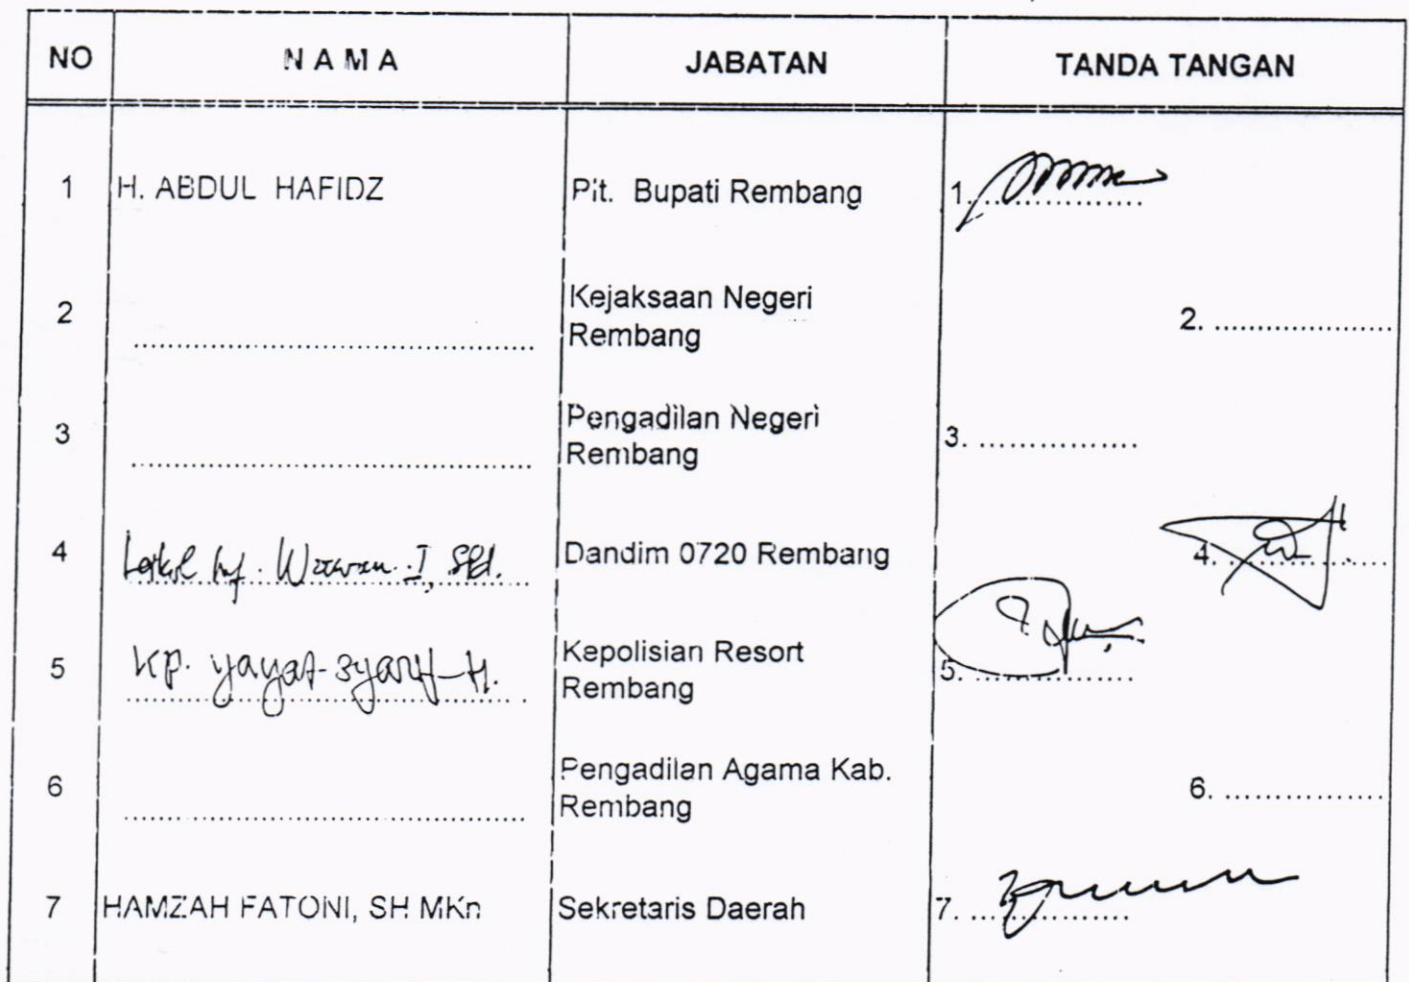 NO N A M A JABATAN TANDA TANGAN
1 H. ABDUL HAFIDZ Plt. Bupati Rembang 1. ................
2 ........................................ Kejaksaan Negeri
Rembang 2. ..................
3 ........................................ Pengadilan Negeri
Rembang 3. ................
4 Letkol Inf. Wawan I, SPd. Dandim 0720 Rembang 4. ..................
5 KP. yayat-syarif-H. Kepolisian Resort
Rembang 5. ................
6 ........................................ Pengadilan Agama Kab.
Rembang 6. ................
7 HAMZAH FATONI, SH MKn Sekretaris Daerah 7. ................